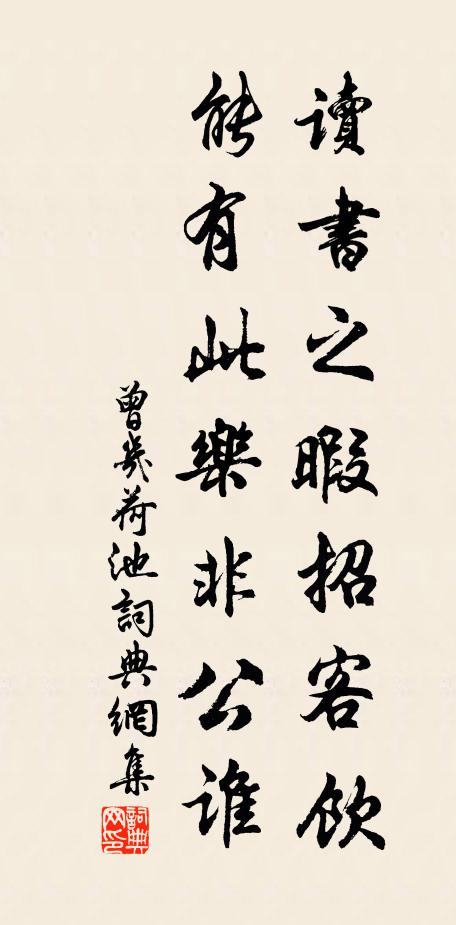 讀書之暇招客飲
能有此樂非公誰
曾幾荷池詞典網集
詞典网印